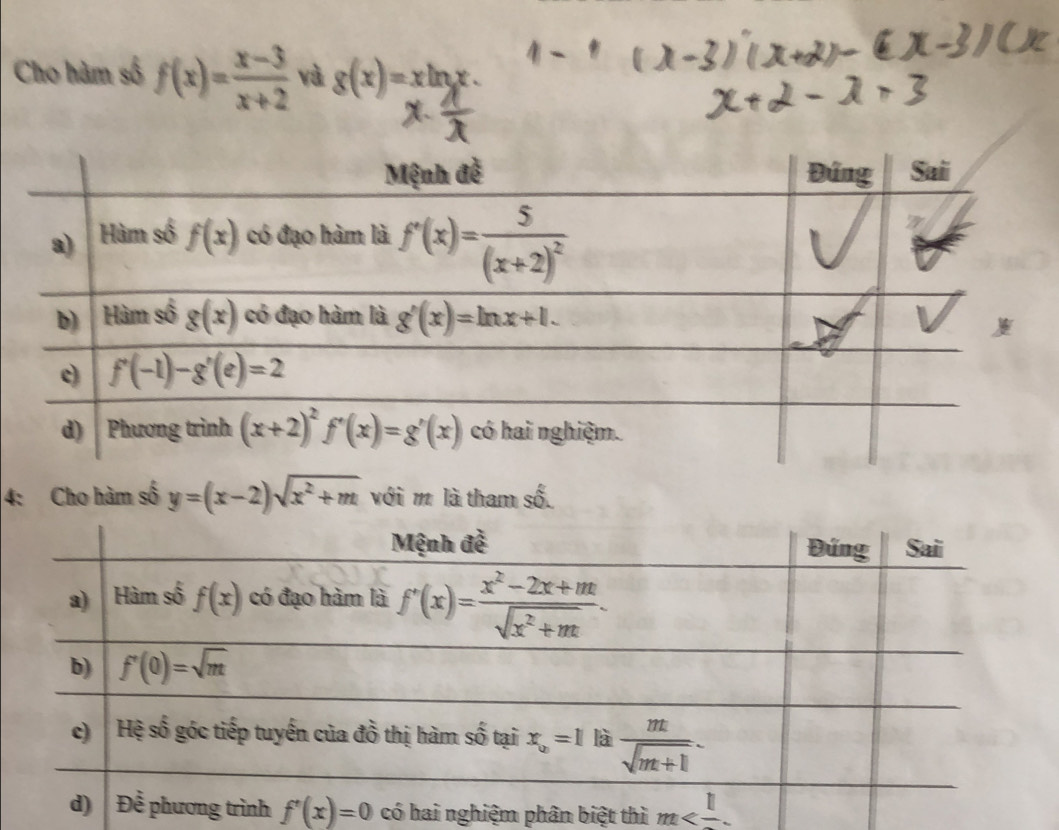 Cho hàm số f(x) = (x-3)/(x+2) và g(x) = x ln x.
1 - 1 (x-3)'(x+2) - (x-3)(x
x+2-x+3
x. 1/x
Mệnh đề Đúng Sai
a) Hàm số f(x) có đạo hàm là f'(x) = 5/(x+2)²
b) Hàm số g(x) có đạo hàm là g'(x) = ln x + 1.
c) f'(-1) - g'(e) = 2
d) Phương trình (x+2)² f'(x) = g'(x) có hai nghiệm.
4: Cho hàm số y = (x-2)√(x²+m) với m là tham số.
Mệnh đề Đúng Sai
a) Hàm số f(x) có đạo hàm là f'(x) = (x²-2x+m)/√(x²+m).
b) f'(0) = √m
c) Hệ số góc tiếp tuyến của đồ thị hàm số tại x₀ = 1 là m/√(m+1).
d) Để phương trình f'(x) = 0 có hai nghiệm phân biệt thì m < 1/